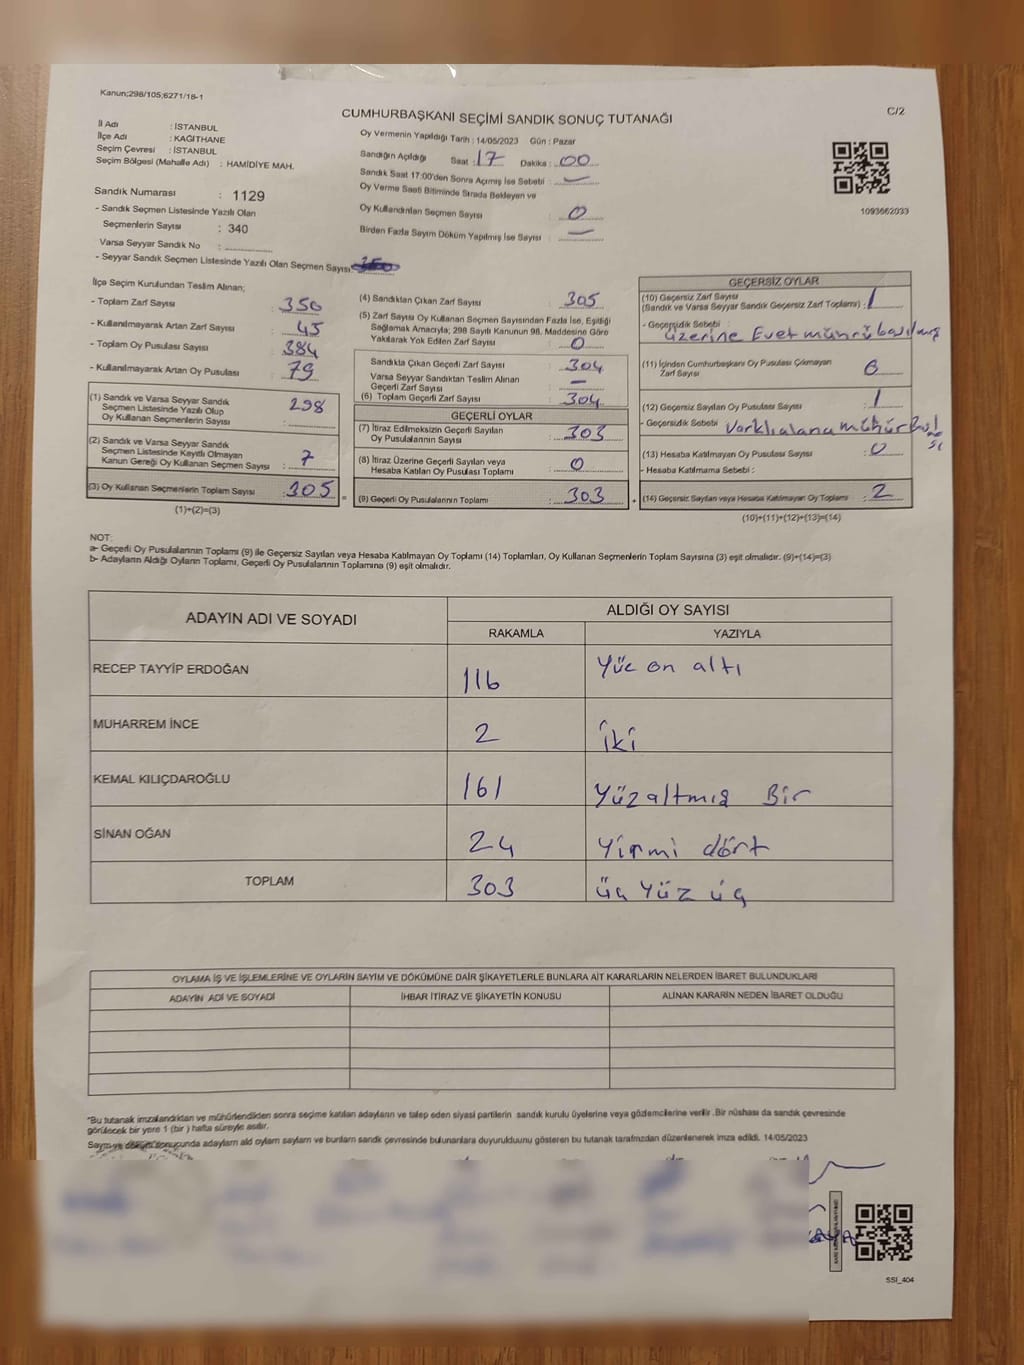 Kanun;298/105;6271/18-1
C/2
CUMHURBAŞKANI SEÇİMİ SANDIK SONUÇ TUTANAĞI
İl Adı : İSTANBUL
İlçe Adı : KAĞITHANE
Seçim Çevresi : İSTANBUL
Seçim Bölgesi (Mahalle Adı) : HAMİDİYE MAH.
Oy Vermenin Yapıldığı Tarih : 14/05/2023 Gün : Pazar
Sandığın Açıldığı Saat : 17 Dakika : 00
Sandık Saat 17:00'den Sonra Açılmış İse Sebebi : —
Oy Verme Saati Bitiminde Sırada Bekleyen ve
Oy Kullandırılan Seçmen Sayısı : 0
Birden Fazla Sayım Döküm Yapılmış İse Sayısı : —
1093662033
Sandık Numarası : 1129
- Sandık Seçmen Listesinde Yazılı Olan
Seçmenlerin Sayısı : 340
Varsa Seyyar Sandık No :
- Seyyar Sandık Seçmen Listesinde Yazılı Olan Seçmen Sayısı:
İlçe Seçim Kurulundan Teslim Alınan;
- Toplam Zarf Sayısı : 350
- Kullanılmayarak Artan Zarf Sayısı : 45
- Toplam Oy Pusulası Sayısı : 384
- Kullanılmayarak Artan Oy Pusulası : 79
(1) Sandık ve Varsa Seyyar Sandık
Seçmen Listesinde Yazılı Olup
Oy Kullanan Seçmenlerin Sayısı : 298
(2) Sandık ve Varsa Seyyar Sandık
Seçmen Listesinde Kayıtlı Olmayan
Kanun Gereği Oy Kullanan Seçmen Sayısı : 7
(3) Oy Kullanan Seçmenlerin Toplam Sayısı : 305
(1)+(2)=(3)
(4) Sandıktan Çıkan Zarf Sayısı : 305
(5) Zarf Sayısı Oy Kullanan Seçmen Sayısından Fazla İse, Eşitliği
Sağlamak Amacıyla; 298 Sayılı Kanunun 98. Maddesine Göre
Yakılarak Yok Edilen Zarf Sayısı : 0
Sandıkta Çıkan Geçerli Zarf Sayısı : 304
Varsa Seyyar Sandıktan Teslim Alınan
Geçerli Zarf Sayısı : —
(6) Toplam Geçerli Zarf Sayısı : 304
GEÇERLİ OYLAR
(7) İtiraz Edilmeksizin Geçerli Sayılan
Oy Pusulalarının Sayısı : 303
(8) İtiraz Üzerine Geçerli Sayılan veya
Hesaba Katılan Oy Pusulası Toplamı : 0
(9) Geçerli Oy Pusulalarının Toplamı : 303
GEÇERSİZ OYLAR
(10) Geçersiz Zarf Sayısı
(Sandık ve Varsa Seyyar Sandık Geçersiz Zarf Toplamı) : 1
- Geçersizlik Sebebi :
üzerine Evet mührü basılmış
(11) İçinden Cumhurbaşkanı Oy Pusulası Çıkmayan
Zarf Sayısı : 0
(12) Geçersiz Sayılan Oy Pusulası Sayısı : 1
- Geçersizlik Sebebi
(13) Hesaba Katılmayan Oy Pusulası Sayısı : 0
- Hesaba Katılmama Sebebi :
(14) Geçersiz Sayılan veya Hesaba Katılmayan Oy Toplamı : 2
(10)+(11)+(12)+(13)=(14)
NOT:
a- Geçerli Oy Pusulalarının Toplamı (9) ile Geçersiz Sayılan veya Hesaba Katılmayan Oy Toplamı (14) Toplamları, Oy Kullanan Seçmenlerin Toplam Sayısına (3) eşit olmalıdır. (9)+(14)=(3)
b- Adayların Aldığı Oyların Toplamı, Geçerli Oy Pusulalarının Toplamına (9) eşit olmalıdır.
ADAYIN ADI VE SOYADI
ALDIĞI OY SAYISI
RAKAMLA YAZIYLA
RECEP TAYYİP ERDOĞAN 116 Yüz on altı
MUHARREM İNCE 2 iki
KEMAL KILIÇDAROĞLU 161 Yüzaltmış Bir
SİNAN OĞAN 24 Yirmi dört
TOPLAM 303 üç yüz üç
OYLAMA İŞ VE İŞLEMLERİNE VE OYLARIN SAYIM VE DÖKÜMÜNE DAİR ŞİKAYETLERLE BUNLARA AİT KARARLARIN NELERDEN İBARET BULUNDUKLARI
ADAYIN ADI VE SOYADI İHBAR İTİRAZ VE ŞİKAYETİN KONUSU ALINAN KARARIN NEDEN İBARET OLDUĞU
"Bu tutanak imzalandıktan ve mühürlendikten sonra seçime katılan adayların ve talep eden siyasi partilerin sandık kurulu üyelerine veya gözlemcilerine verilir. Bir nüshası da sandık çevresinde
görülecek bir yere 1 (bir) hafta süreyle asılır.
Sayım ve döküm sonucunda adayların ald oyların sayların ve bunların sandık çevresinde bulunanlara duyurulduunu gösteren bu tutanak tarafmzdan düzenlenerek imza edildi. 14/05/2023
SSI_404